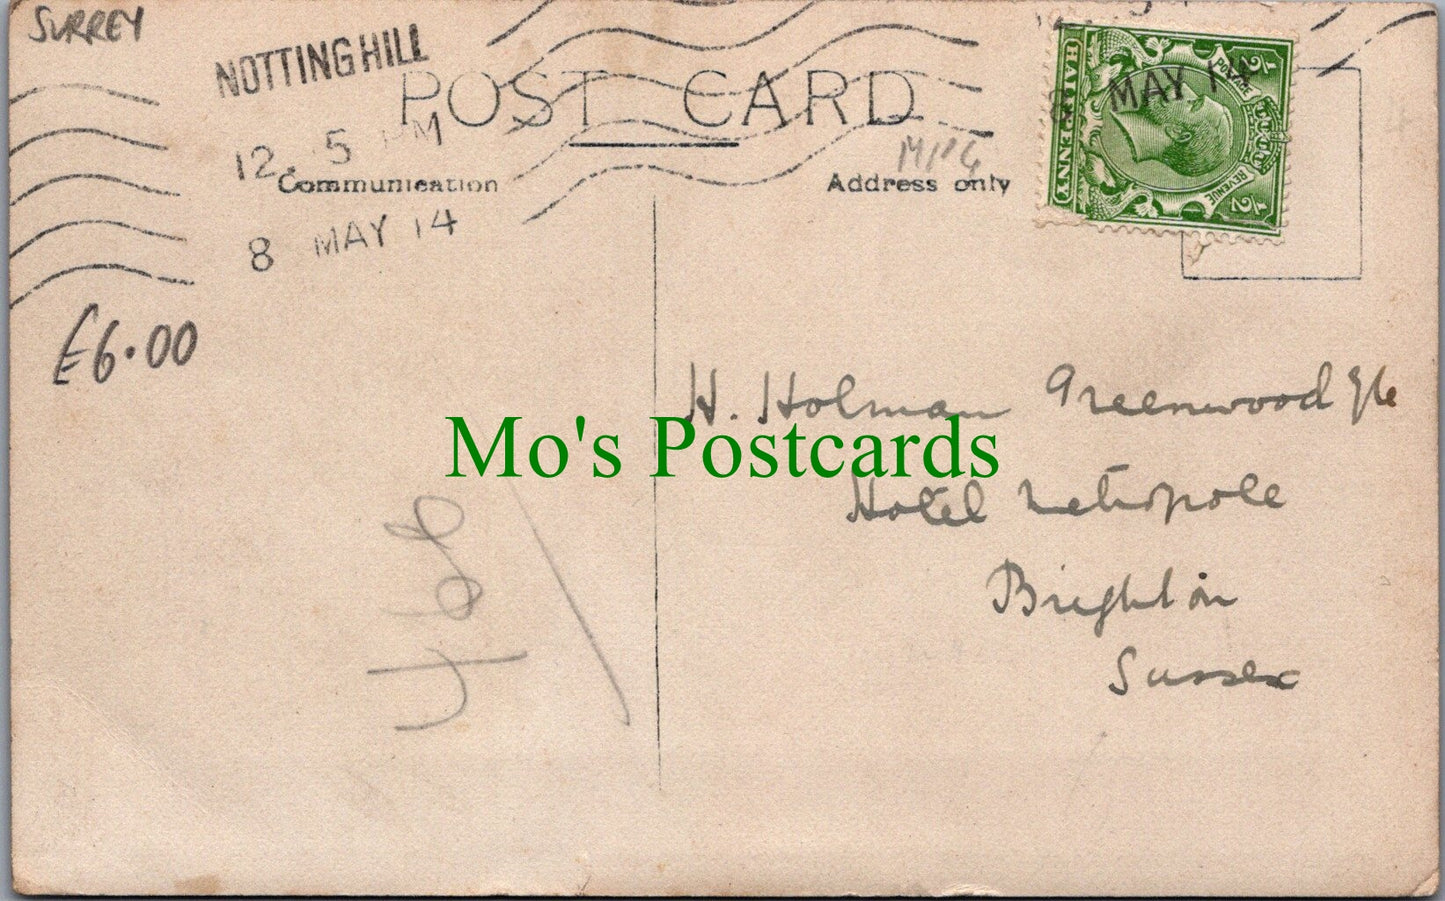 SURREY
NOTTING HILL
12. 5 PM
8 MAY 14
POST CARD
Communication
Address only
MAY 14
POSTAGE
REVENUE
HALFPENNY
1/2
1/2
£6.00
H. Holman Greenwood Esq
Hotel Metropole
Brighton
Sussex
Mo's Postcards
468